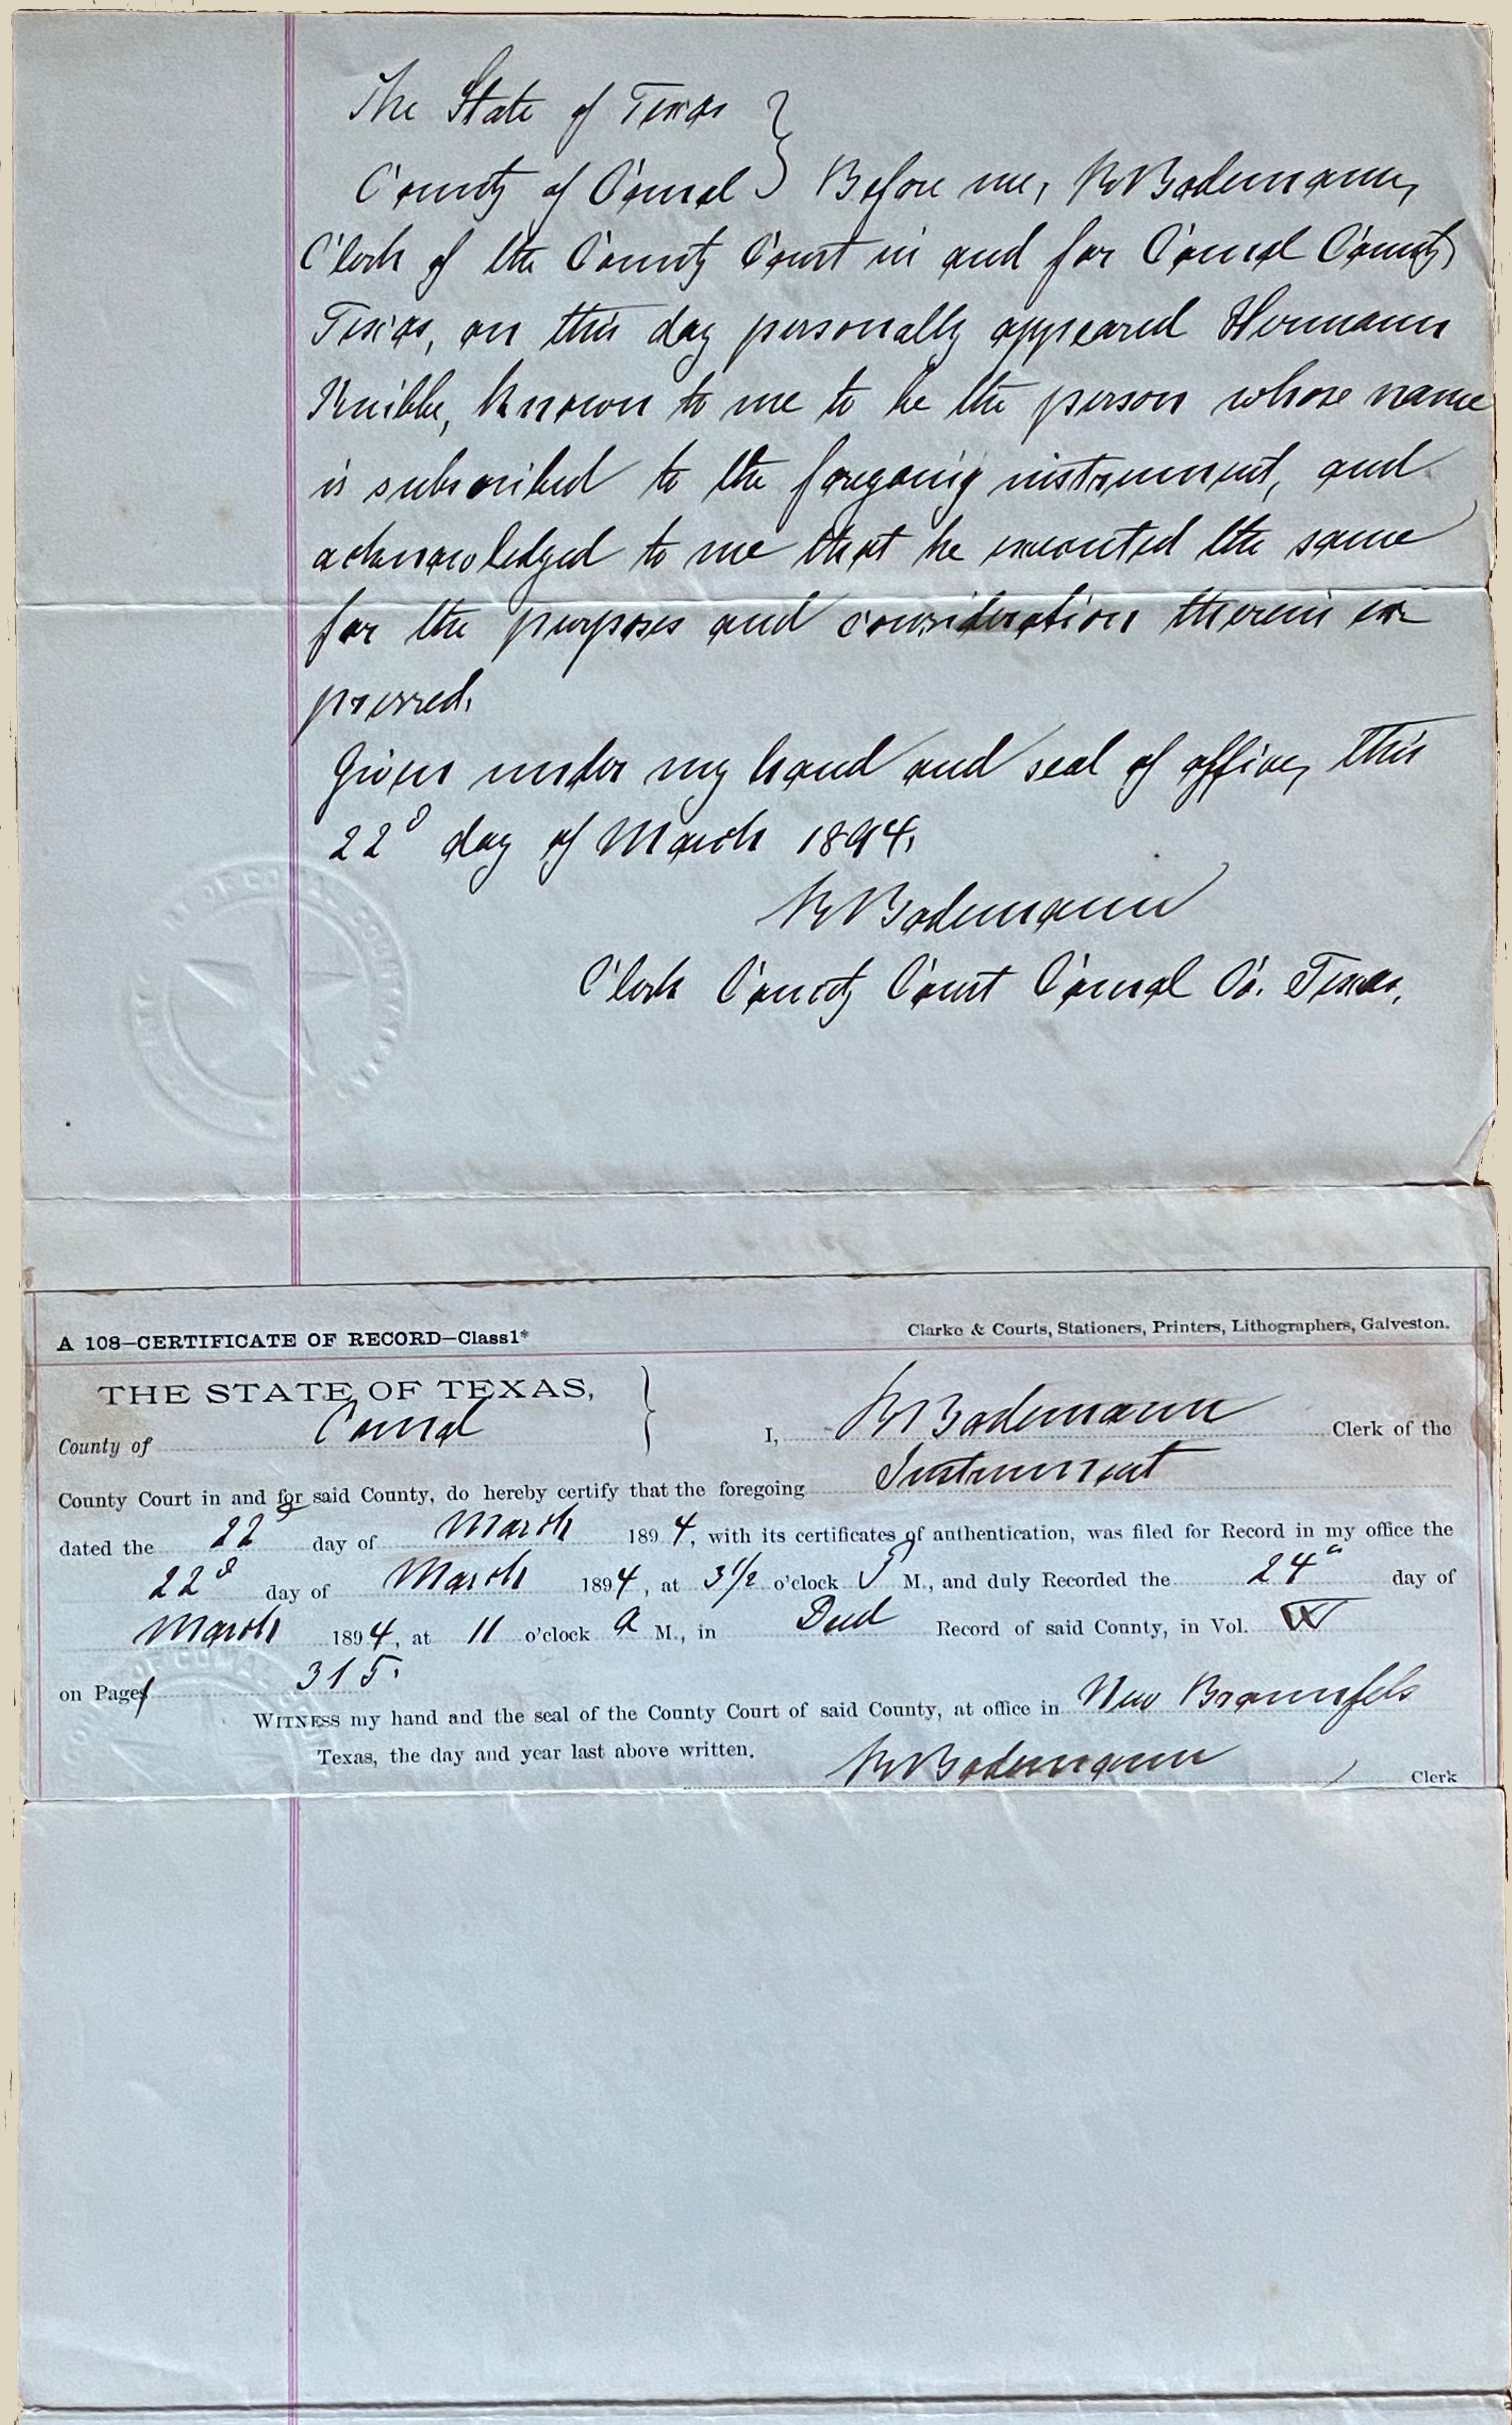 The State of Texas }
County of Comal } Before me, R Bodemann,
Clerk of the County Court in and for Comal County
Texas, on this day personally appeared Hermann
Knibbe, known to me to be the person whose name
is subscribed to the foregoing instrument, and
acknowledged to me that he executed the same
for the purposes and consideration therein ex-
pressed.
Given under my hand and seal of office, this
22d day of March 1894.
R Bodemann
Clerk County Court Comal Co. Texas.
OF COMAL COUNTY
A 108—CERTIFICATE OF RECORD—Class1* Clarke & Courts, Stationers, Printers, Lithographers, Galveston.
THE STATE OF TEXAS, }
County of Comal I, R Bodemann Clerk of the
County Court in and for said County, do hereby certify that the foregoing Instrument
dated the 22d day of March 1894, with its certificates of authentication, was filed for Record in my office the
22d day of March 1894, at 3 1/2 o'clock P M., and duly Recorded the 24" day of
March 1894, at 11 o'clock A M., in Deed Record of said County, in Vol. W
on Page 315.
WITNESS my hand and the seal of the County Court of said County, at office in New Braunfels
Texas, the day and year last above written.
R Bodemann Clerk
OF COMAL